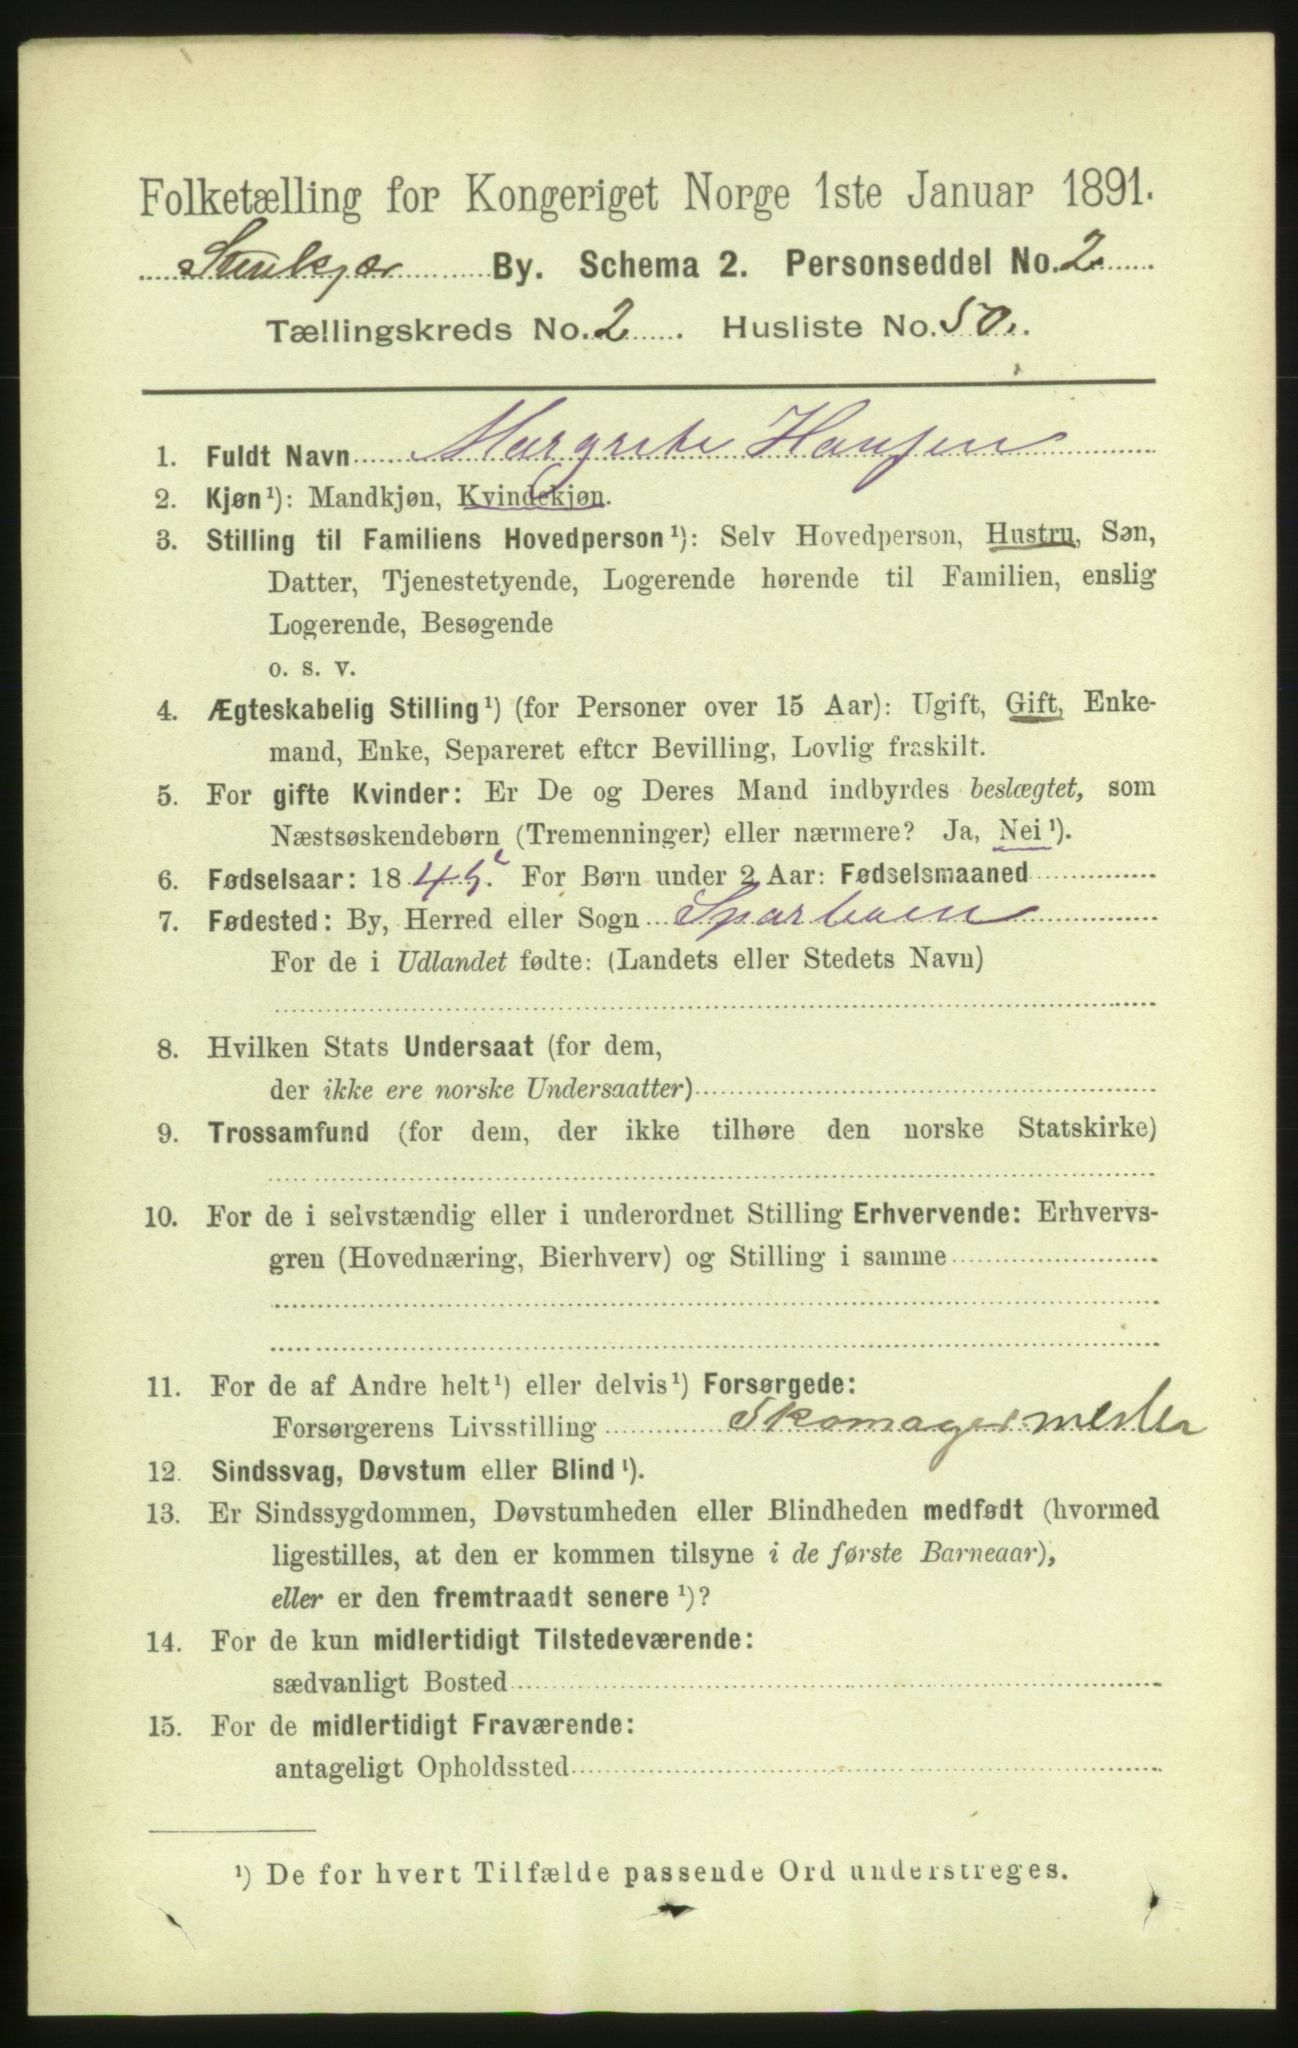 Folketælling for Kongeriget Norge 1ste Januar 1891.
Stenkjær By. Schema 2. Personseddel No. 2
Tællingskreds No. 2. Husliste No. 50.
1. Fuldt Navn Margrete Hansen
2. Kjøn¹): Mandkjøn, Kvindekjøn.
3. Stilling til Familiens Hovedperson¹): Selv Hovedperson, Hustru, Søn,
Datter, Tjenestetyende, Logerende hørende til Familien, enslig
Logerende, Besøgende
o. s. v.
4. Ægteskabelig Stilling¹) (for Personer over 15 Aar): Ugift, Gift, Enke-
mand, Enke, Separeret efter Bevilling, Lovlig fraskilt.
5. For gifte Kvinder: Er De og Deres Mand indbyrdes beslægtet, som
Næstsøskendebørn (Tremenninger) eller nærmere? Ja, Nei¹).
6. Fødselsaar: 1845. For Børn under 2 Aar: Fødselsmaaned
7. Fødested: By, Herred eller Sogn Sparbuen
For de i Udlandet fødte: (Landets eller Stedets Navn)
8. Hvilken Stats Undersaat (for dem,
der ikke ere norske Undersaatter)
9. Trossamfund (for dem, der ikke tilhøre den norske Statskirke)
10. For de i selvstændig eller i underordnet Stilling Erhvervende: Erhvervs-
gren (Hovednæring, Bierhverv) og Stilling i samme
11. For de af Andre helt¹) eller delvis¹) Forsørgede:
Forsørgerens Livsstilling Skomagermester
12. Sindssvag, Døvstum eller Blind¹).
13. Er Sindssygdommen, Døvstumheden eller Blindheden medfødt (hvormed
ligestilles, at den er kommen tilsyne i de første Barneaar),
eller er den fremtraadt senere¹)?
14. For de kun midlertidigt Tilstedeværende:
sædvanligt Bosted
15. For de midlertidigt Fraværende:
antageligt Opholdssted
¹) De for hvert Tilfælde passende Ord understreges.